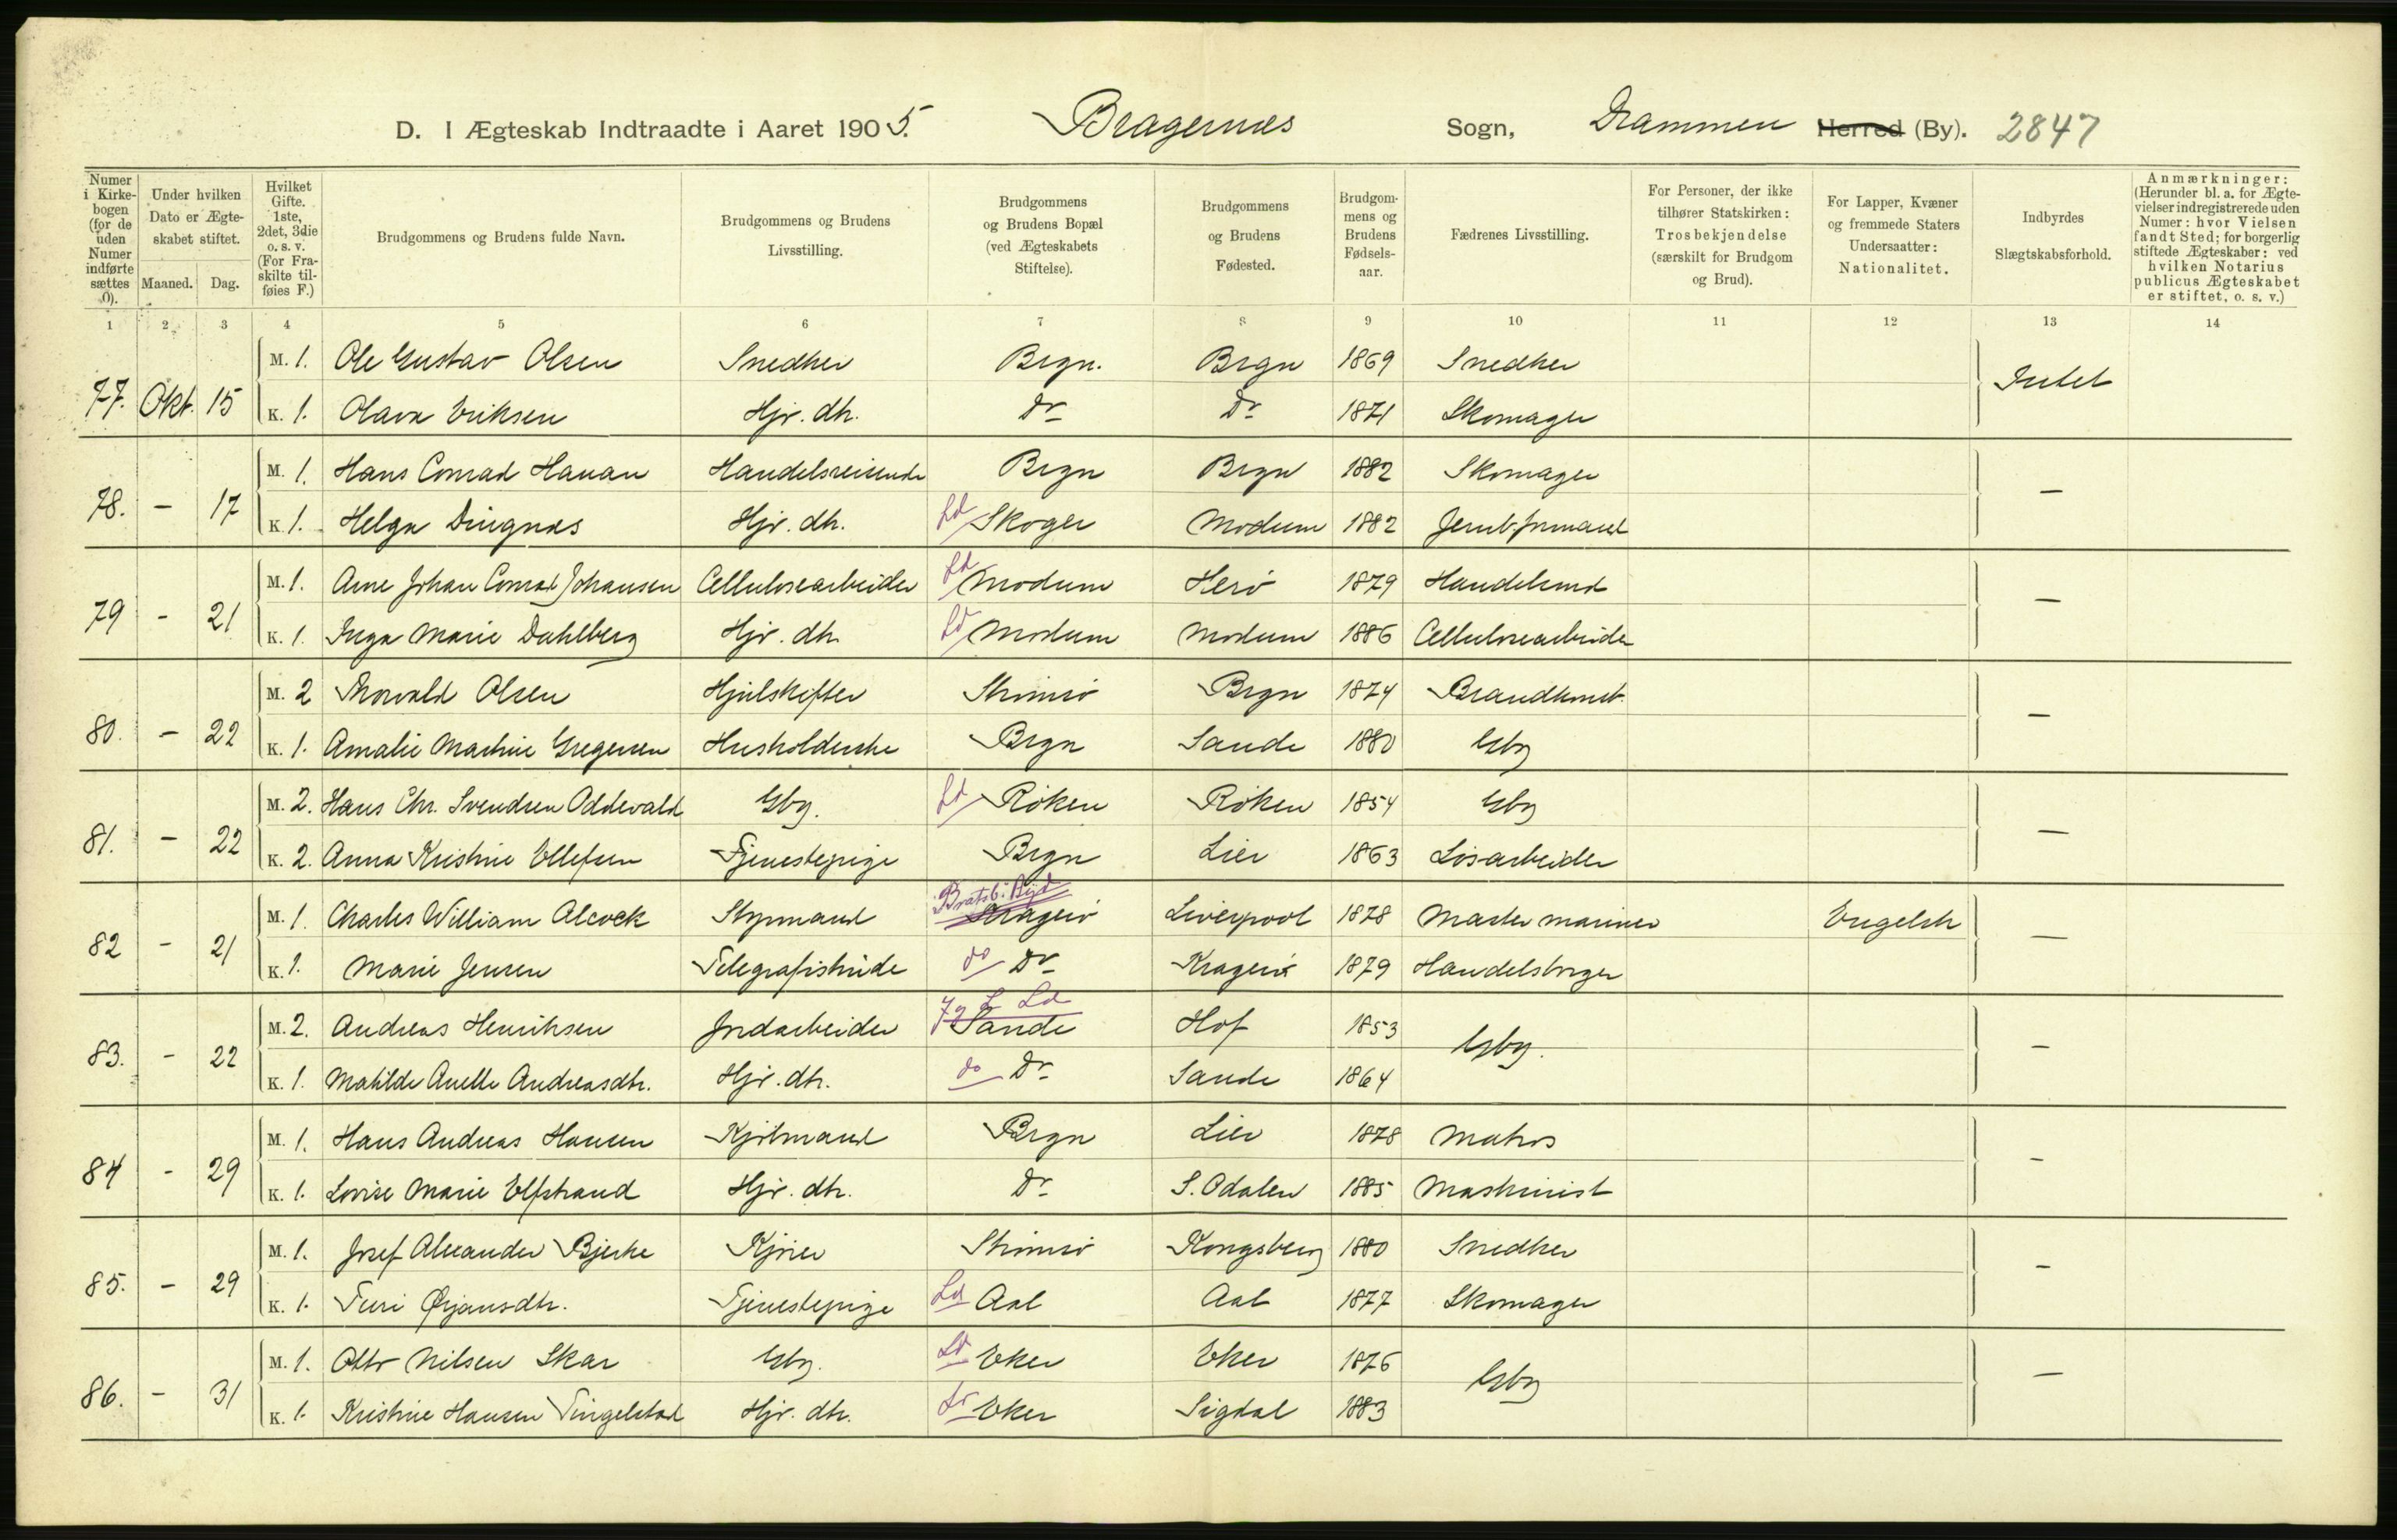 D. I Ægteskab Indtraadte i Aaret 1905. Bragernæs Sogn, Drammen Herred (By). 2847
Numer i Kirkebogen (for de uden Numer indførte sættes 0).
Under hvilken Dato er Ægteskabet stiftet.
Maaned. Dag.
Hvilket Gifte. 1ste, 2det, 3die o. s. v. (For Fraskilte tilføies F.)
Brudgommens og Brudens fulde Navn.
Brudgommens og Brudens Livsstilling.
Brudgommens og Brudens Bopæl (ved Ægteskabets Stiftelse).
Brudgommens og Brudens Fødested.
Brudgommens og Brudens Fødselsaar.
Fædrenes Livsstilling.
For Personer, der ikke tilhører Statskirken: Trosbekjendelse (særskilt for Brudgom og Brud).
For Lapper, Kvæner og fremmede Staters Undersaatter: Nationalitet.
Indbyrdes Slægtskabsforhold.
Anmærkninger: (Herunder bl. a. for Ægtevielser indregistrerede uden Numer: hvor Vielsen fandt Sted; for borgerlig stiftede Ægteskaber: ved hvilken Notarius publicus Ægteskabet er stiftet, o. s. v.)
1 2 3 4 5 6 7 8 9 10 11 12 13 14
M. 1. Ole Gustav Olsen Snedker Brgn. Brgn 1869 Snedker
77. Okt. 15 Intet
K. 1. Olava Eriksen Hjr. dh. Do Do 1871 Skomager
M. 1. Hans Conrad Hanan Handelsreisende Brgn Brgn 1882 Skomager
78. - 17 -
K. 1. Helga Dingnæs Hjr. dh. Ld Skoger Modum 1882 Jernbformand
M. 1. Arne Johan Conrad Johansen Cellulosearbeider Ld Modum Herø 1879 Handelsmd
79 - 21 -
K. 1. Inga Marie Dahlberg Hjr. dh. Ld Modum Modum 1886 Cellulosearbeider
M. 2 Thorvald Olsen Hjulskifter Strømsø Brgn 1874 Brandkonst.
80. - 22 -
K. 1. Amalie Mathie Gregersen Husholderske Brgn Sande 1880 Gbr
M. 2. Hans Chr. Svendsen Oddevald Gbr. Ld Røken Røken 1854 Gbr
81. - 22 -
K. 2. Anna Kristine Ellefsen Tjenestepige Brgn Lier 1863 Løsarbeider
Bratsb. Byd
M. 1. Charles William Alcock Styrmand Kragerø Liverpool 1878 Master mariner Engelsk
82 - 21 -
K. 1. Marie Jensen Telegrafistinde do Do Kragerø 1879 Handelsborger
M. 2. Andreas Henriksen Jordarbeider Sande Hof 1853
83. - 22 Gbr. -
K. 1. Matilde Anette Andreasdtr. Hjr. dtr. do Do Sande 1864
M. 1. Hans Andreas Hansen Kjølmand Brgn Lier 1878 Matros
84 - 29 -
K. 1. Lovise Marie Elfstrand Hjr. dtr. Do S. Odalen 1885 Maskinist
M. 1. Josef Alexander Bjerke Kjører Strømsø Kongsberg 1880 Snedker
85. - 29 -
K. 1. Turi Ørjansdtr. Tjenestepige Ld Aal Aal 1877 Skomager
M. 1. Otto Nilsen Skar Gbr. Ld Eker Eker 1876
86. - 31 Gbr -
K. 1. Kristine Hansen Tingelstad Hjr. dtr. Ld Eker Sigdal 1883